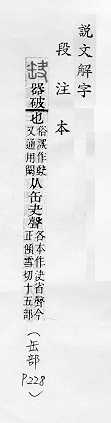 說文解字
段注本
器破也俗誤作又通用闕从缶夬聲各本作決省聲今正傾雪切十五部(缶部P228)